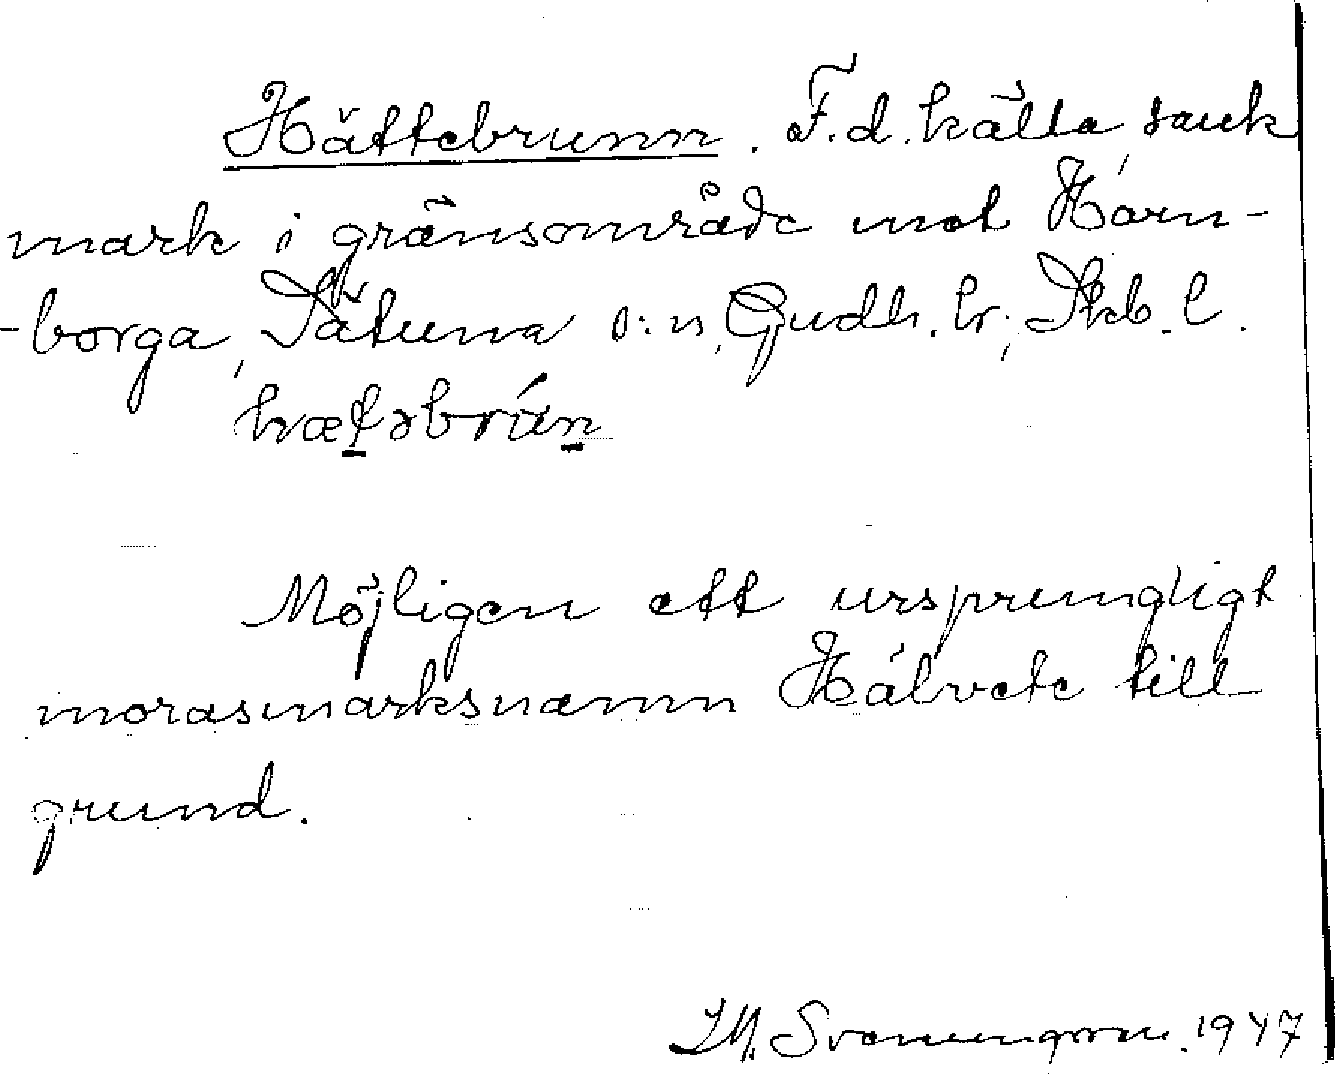 Hättebrunn. F.d. källa, sank
mark i gränsområde mot Horn-
-borga, Sätuna s:n, Gudh. hr; Skb. l.
hætəbrun
Möjligen ett ursprungligt
morasmarksnamn Hälvete till
grund.
1947